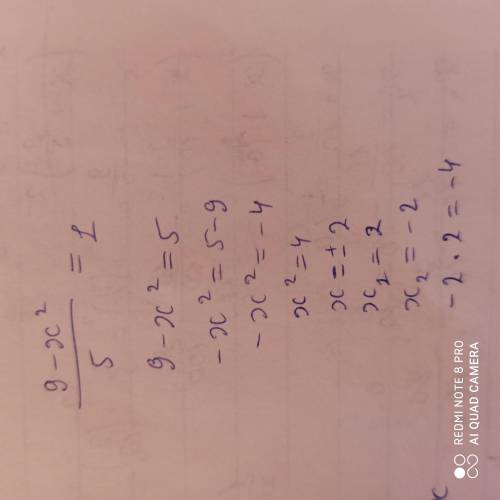 9-x²/5 = 1
9-x² = 5
-x² = 5-9
-x² = -4
x² = 4
x = ± 2
x₁ = 2
x₂ = -2
-2 · 2 = -4
REDMI NOTE 8 PRO
AI QUAD CAMERA